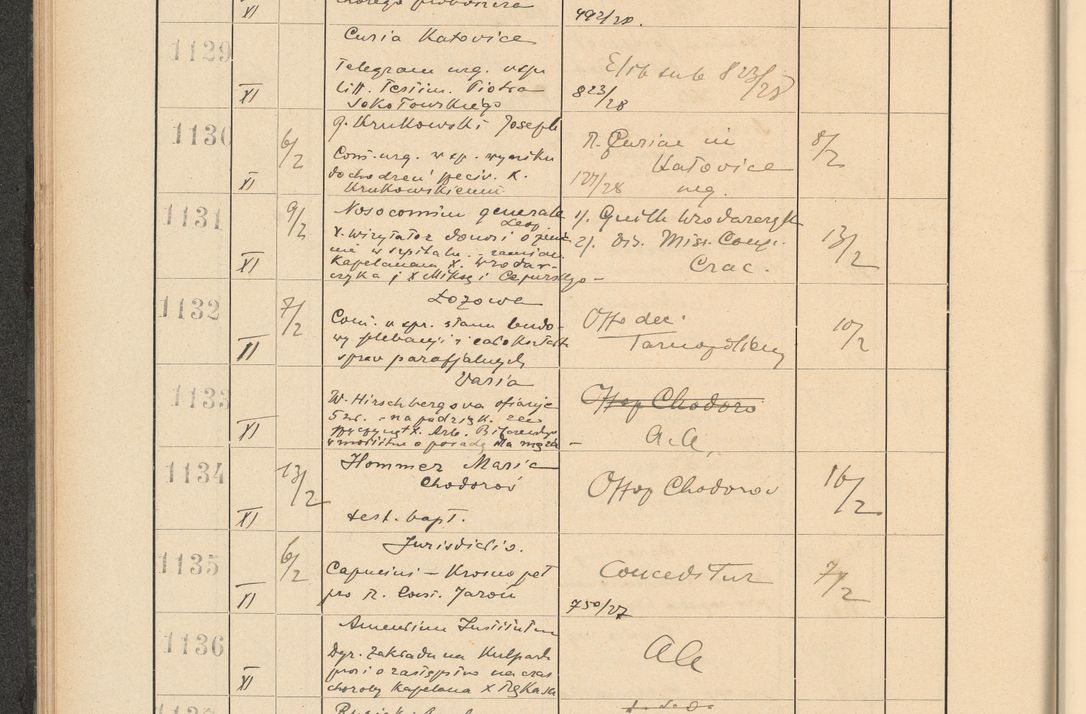 XI
492/28.
1129
Curia Katovice
Telegram urg. wspr
litt. Testim. Piotra
Sokołowskiego
XI
Elib sub 823/28
823/28
1130
6/2
q. Krukowski Joseph
Com. urg. w sp. wyniku
dochodzeń X.
Krukowskiemu
XI
R. Curiae in
Katovice
127/28 urg.
8/2
1131
9/2
Nosocomium generale
Leop.
X. wizytator donosi o
nie w szpitalu. - zamian.
Kapelanam X. Wrodar-
czyka i X Miksę i Cepurskiego -
XI
1). Guilh Wrodarczyk
2). Dir. Miss. Congr.
Crac.
13/2
1132
7/2
Łozowa
Com. w spr. stanu budo-
wy plebanji i całokształt
spraw parafjalnych
XI
Offo dec.
Tarnopoliens
10/2
1133
Varia
W. Hirschbergowa ofiaruje
5 zł. - na podzięk. za
X. Arb.
o poradę dla męża -
XI
Offop Chodoro
a. a,
1134
13/2
Hommer Maria
Chodorów
test. bapt.
XI
Offop Chodorov
16/2
1135
6/2
Jurisdictio.
Capucini - Krosno pet
pro R. Com. Jaroń
XI
Conceditur
750/27
7/2
1136
Amentium Institutum
Dyr. Zakładu na Kulpark
prosi o zastępstwo na czas
choroby Kapelana X
XI
a a
1137